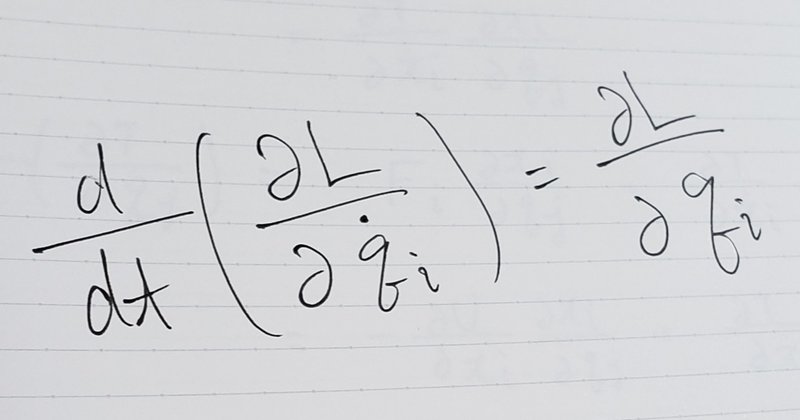 d/dt (∂L/∂q̇ᵢ) = ∂L/∂qᵢ